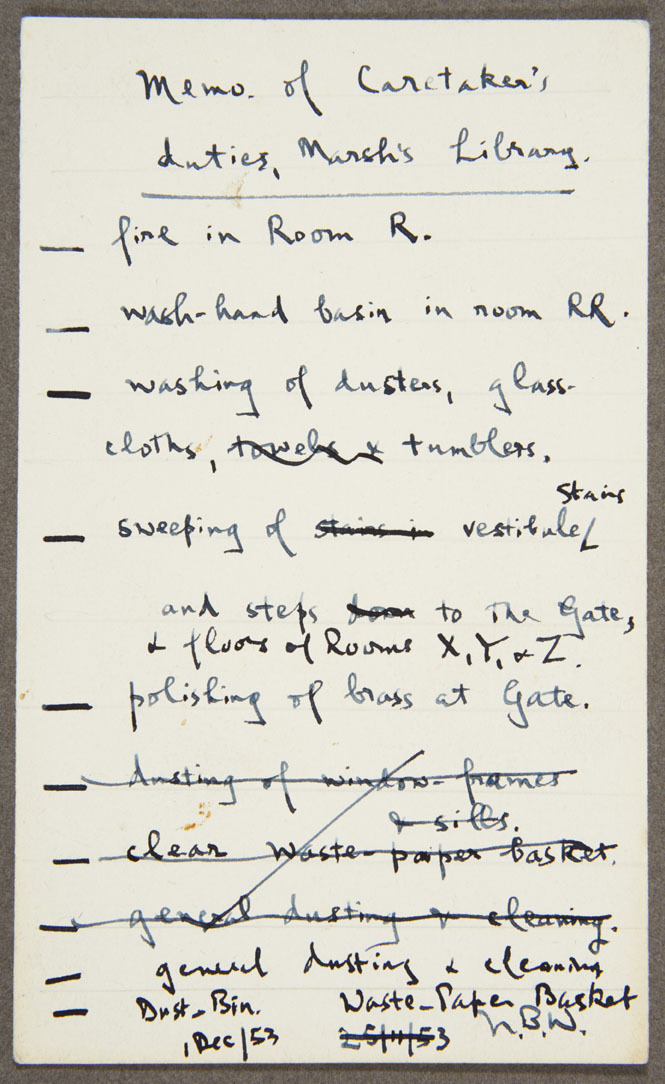 Memo. of Caretaker's
duties, Marsh's Library.
— fire in Room R.
— wash-hand basin in room RR.
— washing of dusters, glass-
cloths, towels & tumblers.
stairs
— sweeping of stairs in vestibule/
and steps down to the Gate,
& floors of Rooms X, Y, & Z.
— polishing of brass at Gate.
— dusting of window-frames
& sills.
— clear waste-paper basket.
— general dusting & cleaning.
— general dusting & cleaning
— Dust-Bin. Waste-Paper Basket
1 Dec/53 25/11/53 N.B.W.